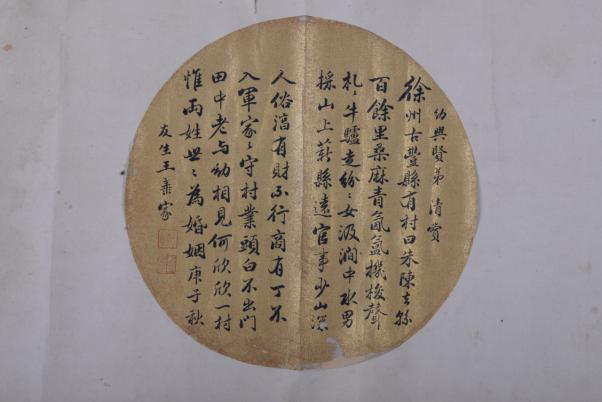 幼與賢弟清賞
徐州古豐縣有村曰朱陳去縣
百餘里桑麻青氤氳機梭聲
札〻牛驢走紛〻女汲澗中水男
採山上薪縣遠官事少山深
人俗湻有財不行商有丁不
入軍家〻守村業頭白不出門
田中老与幼相見何欣欣一村
惟兩姓世〻為婚姻庚子秋
友生王家